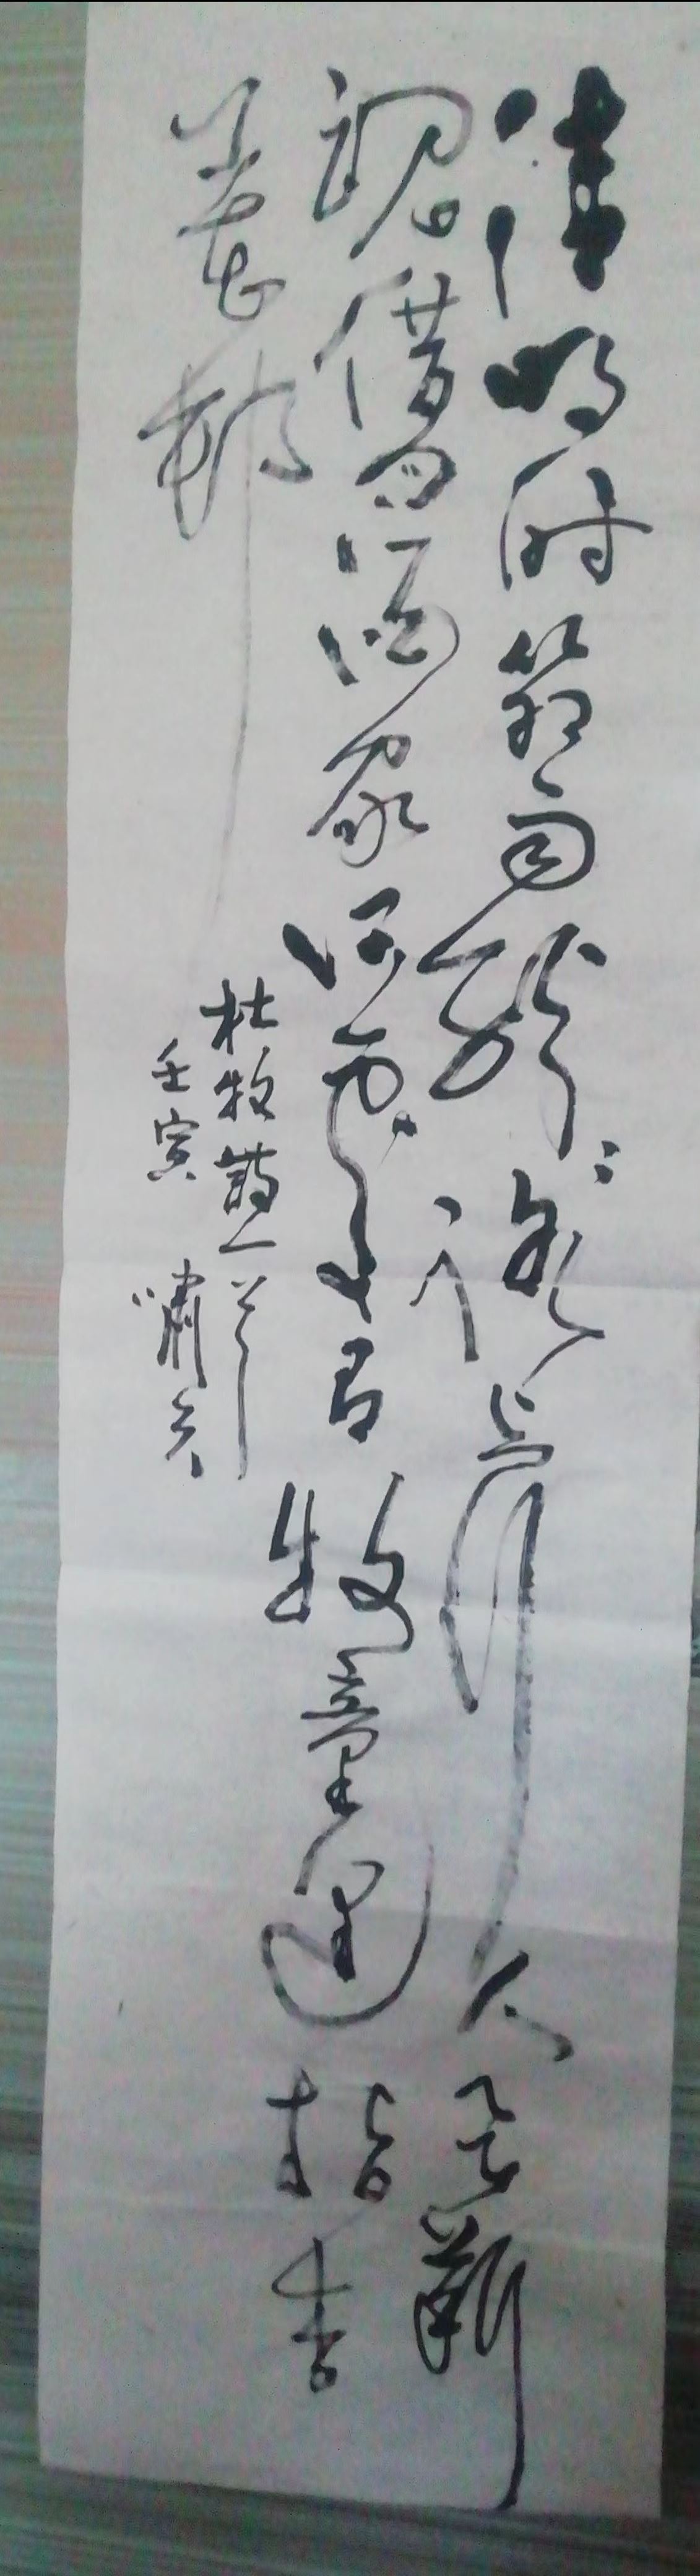 清明时節雨紛〻路上行人欲斷
魂借问酒家何處有牧童遥指杏
花邨
杜牧詩一首
壬寅 嘯天